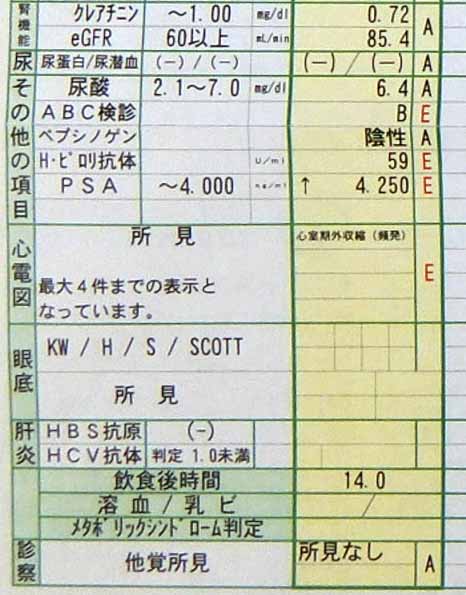 腎機能 クレアチニン ～1.00 mg/dl 0.72 A
eGFR 60以上 mL/min 85.4
尿 尿蛋白/尿潜血 (－)/(－) (－)/(－) A
その他の項目 尿酸 2.1～7.0 mg/dl 6.4 A
ABC検診 B E
ペプシノゲン 陰性 A
H・ピロリ抗体 U/ml 59 E
PSA ～4.000 ng/ml ↑ 4.250 E
心電図 所見 心室期外収縮（頻発） E
最大4件までの表示と
なっています。
眼底 KW / H / S / SCOTT
所見
肝炎 HBS抗原 (－)
HCV抗体 判定 1.0未満
飲食後時間 14.0
溶血/乳ビ /
メタボリックシンドローム判定
診察 他覚所見 所見なし A